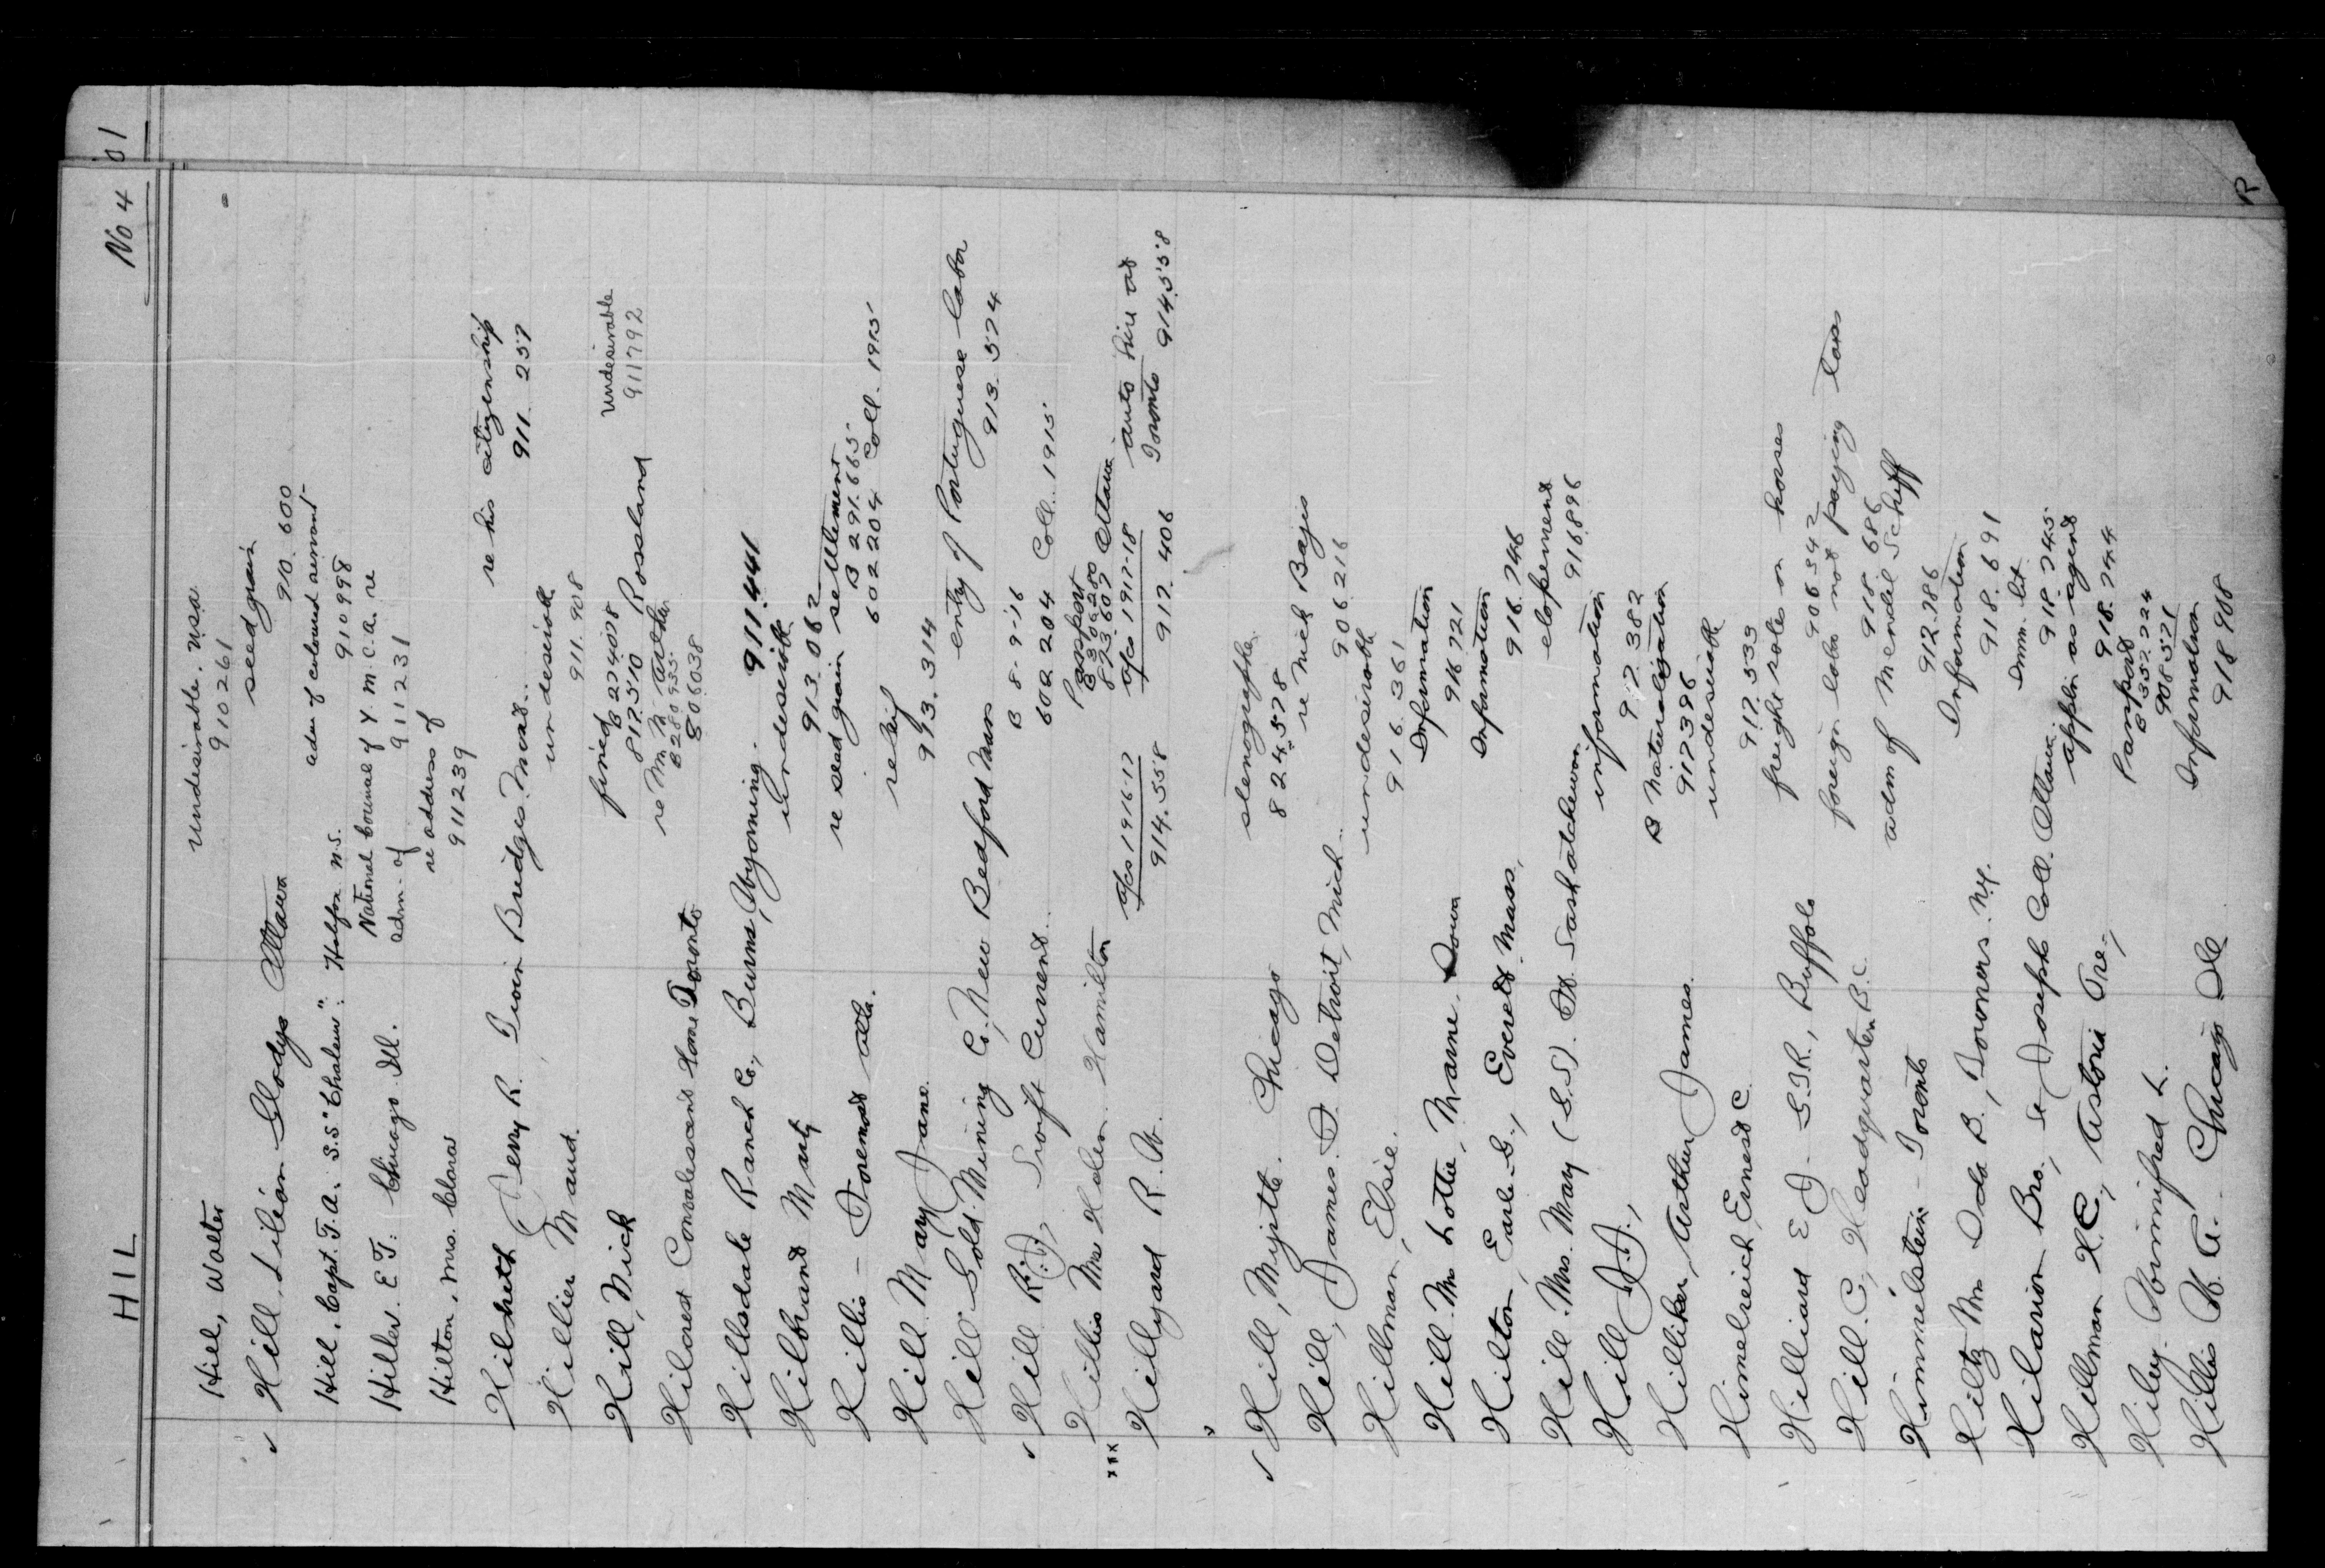 HIL
No 4
Hill, Walter undesirable. N.S.
910261
Hill, Lilian Gladys Ottawa seed grain
910.600
Hill, Capt. T.A. S.S. "Chaleur": Halifax N.S. adm of coloured servant
910998
Hiller. E T: Chicago Ill. National Council of Y.M.C.A. re
adm. of 911231
Hilton, Mrs. Clara re address of
911239
Hildreth Perry R. Twin Bridges. Mont. re his citizenship
911 257
Hillier Maud. undesirable
911.908
Hill, Nick fined undesirable
B 274078 911792
817510 Rossland
Hilcrest Convalescent Home Toronto re M. M.
B 280955
806038
Hillsdale Ranch Co., Burns, Wyoming. 911.441
Hilbrand Mary undesirable
913.062
Hillis - Foremost Alta. re seed grain settlement
B 291.665
602204 Coll. 1915
Hill Mary Jane relief
913.314
Hill Gold Mining Co., New Bedford Mass entry of Portuguese labor
913.574
Hill R.J., Swift Current. B 8-9-16
602204 Coll. 1915
Hillis Mrs Helen. Hamilton Passport
B 306280
873607 Ottawa
xxx
Hillyard R. W. a/cs 1916-17 a/cs 1917-18 auto hire at
914.558 917.406 Toronto 914.558
Hill, Myrtle. Chicago stenographer
824.578
Hill, James. F. Detroit, Mich. re Nick Bajis
906216
Hillman, Elsie. undesirable
916.361
Hill. Mrs Lottie, Marne, Iowa Information
916.721
Hilton, Earle G., Everett. Mass. Information
916.746
Hill. Mrs. May (S.S). St. Saskatchewan elopement
916.896
Hill J.J., information
917.382
Hilliker, Arthur James. B Naturalization
917396
Himelreich, Ernest C. undesirable
917.533
Hilliard E J - G.T.R., Buffalo freight rates on horses
906342
Hill. C., Headquarters B.C. foreign labor not paying taxes
918.686
Himmelstein - Toronto adm of Mendel Schiff
912.786
Hiltz Mrs Ida B., Towners. N.Y. Information
918.691
Hilarion Bro., St Joseph Coll. Ottawa. Imm. lit.
918.745
Hillman H.C., Astoria Ore., appln as agent
918.744
Hiley. Winnifred L. Passport
B 357224
908571
Hillis W. A. Chicago Ill Information
918908
R